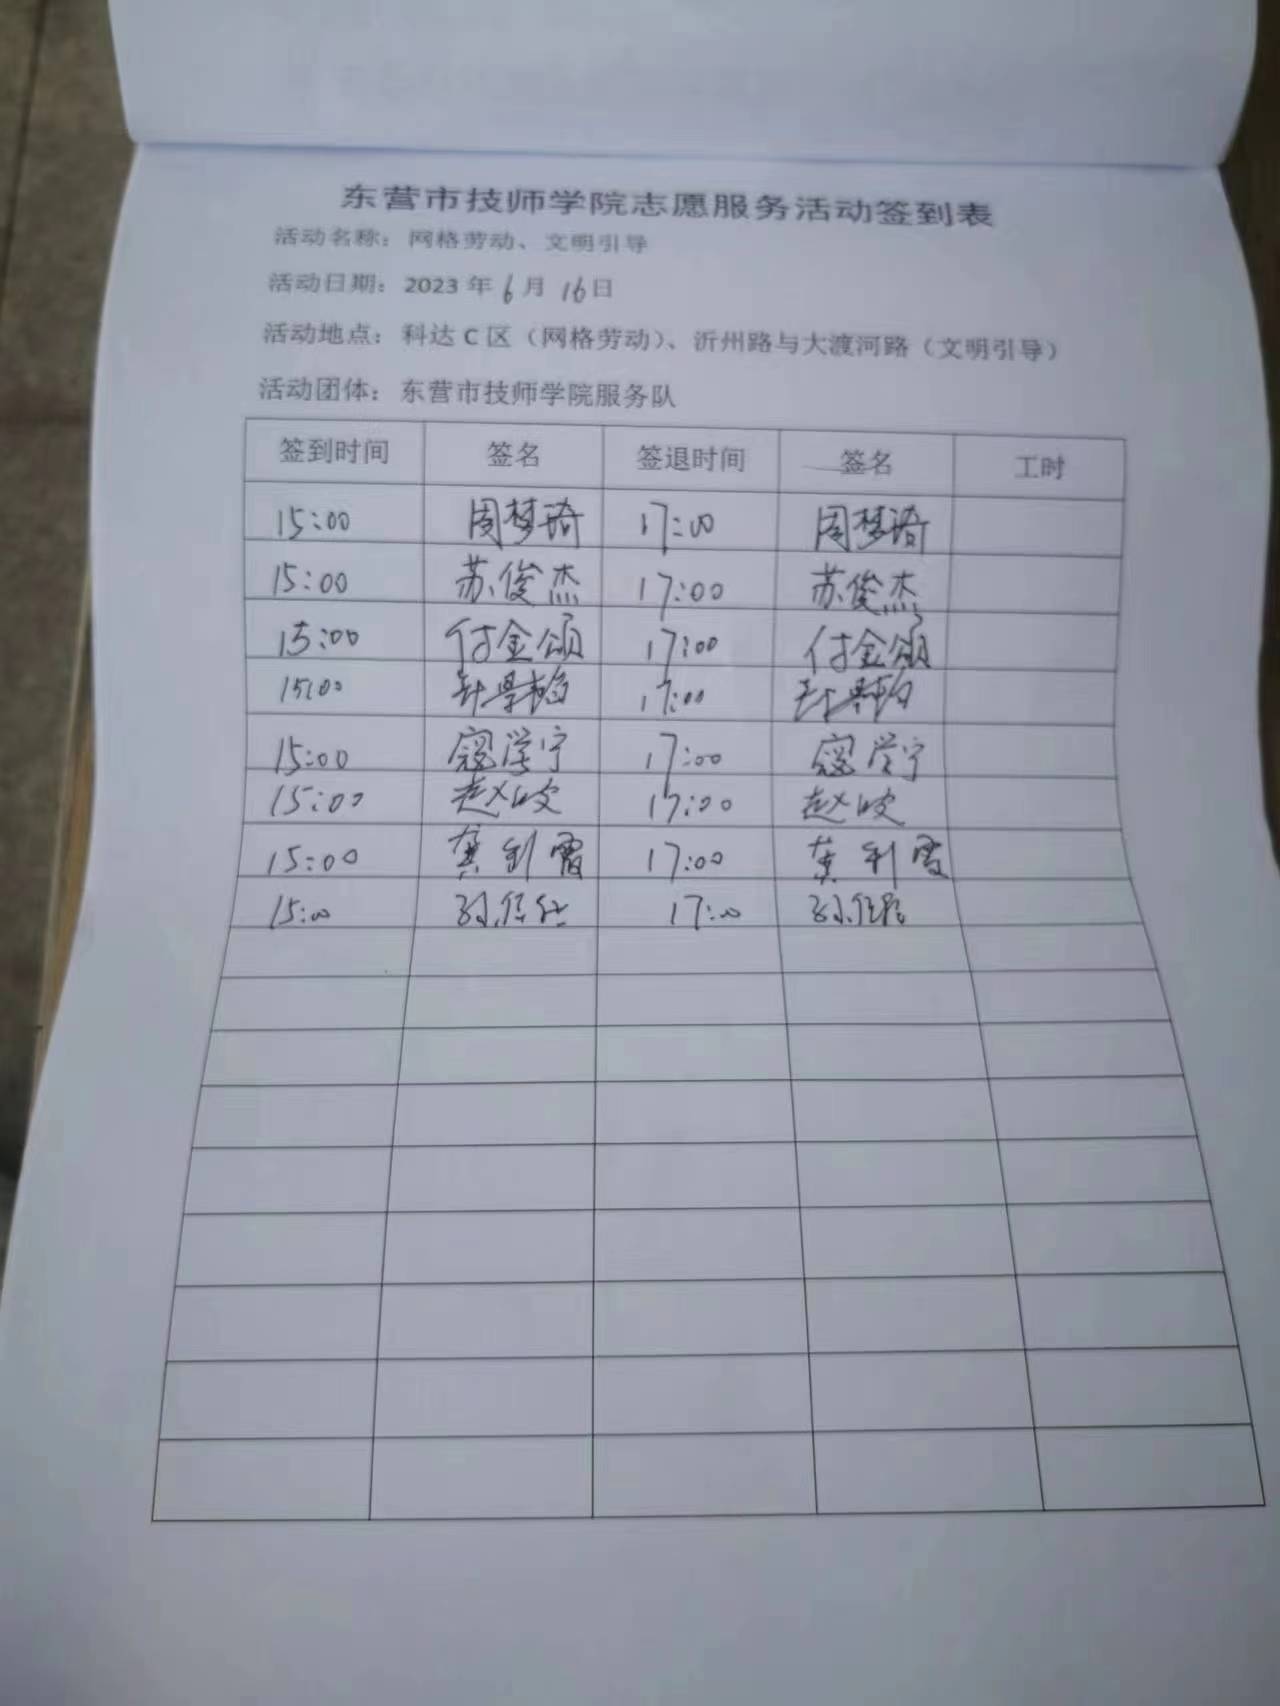 东营市技师学院志愿服务活动签到表
活动名称：网格劳动、文明引导
活动日期：2023 年 6 月 16 日
活动地点：科达 C 区（网格劳动）、沂州路与大渡河路（文明引导）
活动团体：东营市技师学院服务队
签到时间 签名 签退时间 签名 工时
15:00 周梦琦 17:00 周梦琦
15:00 苏俊杰 17:00 苏俊杰
15:00 付金颂 17:00 付金颂
15:00 17:00
15:00 寇学宁 17:00 寇学宁
15:00 赵皎 17:00 赵皎
15:00 龚利霞 17:00 龚利霞
15:00 17:00